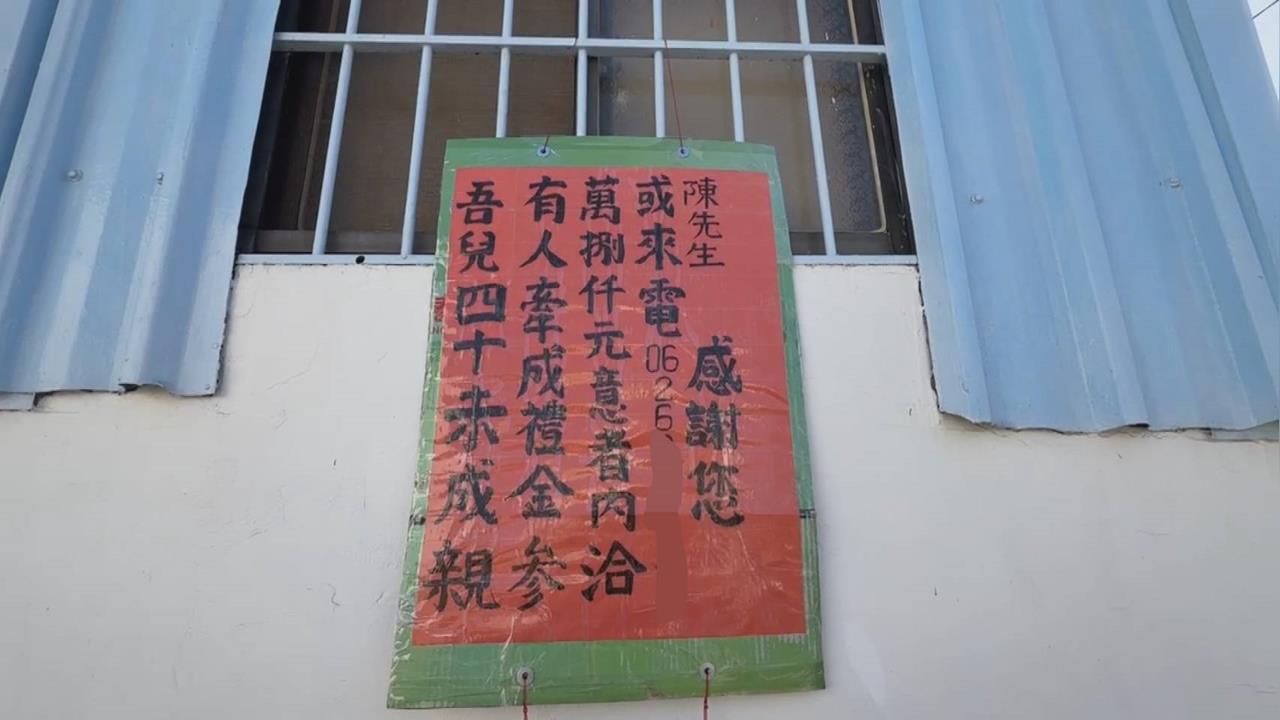 吾兒四十未成親
有人牽成禮金参
萬捌仟元意者內洽
或來電06 26
陳先生
感謝您